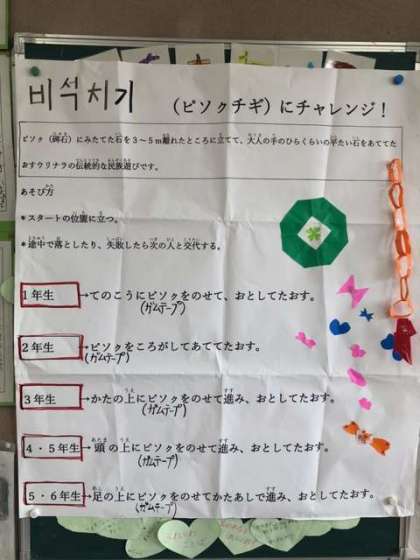 비석치기 (ピソクチギ)にチャレンジ!
ピソク(碑石)にみたてた石を3~5m離れたところに立てて、大人の手のひらくらいの平たい石をあててた
おすウリナラの伝統的な民族遊びです。
あそび方
*スタートの位置に立つ。
*途中で落としたり、失敗したら次の人と交代する。
1年生 →てのこうにピソクをのせて、おとしてたおす。
(ガムテープ)
2年生 →ピソクをころがしてあててたおす。
(ガムテープ)
3年生 →かたの上にピソクをのせて進み、おとしてたおす。
(ガムテープ)
4・5年生 →頭の上にピソクをのせて進み、おとしてたおす。
(ガムテープ)
5・6年生 →足の上にピソクをのせてかたあしで進み、おとしてたおす。
(ガムテープ)